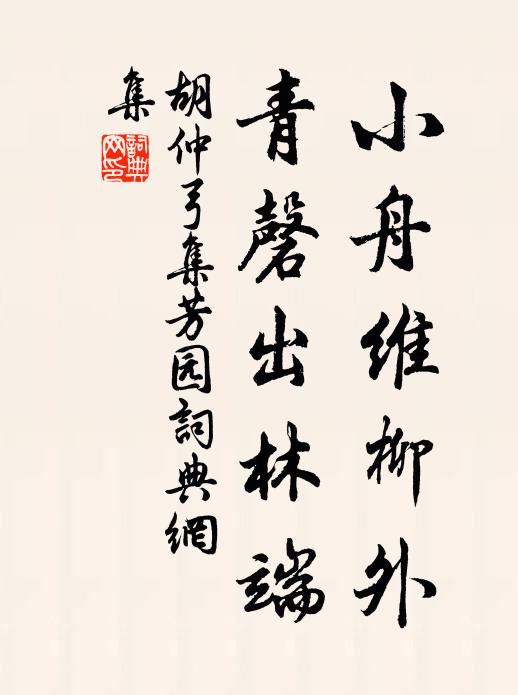 小舟维柳外
青磬出林端
胡仲弓集芳园詞典網
集
詞典
网印